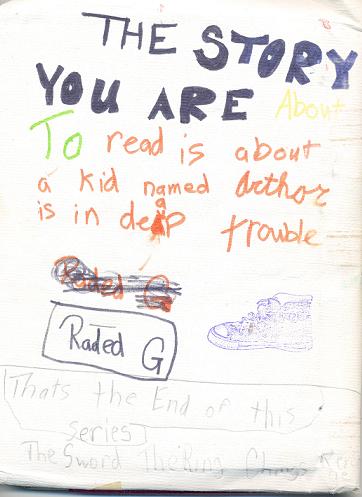 THE STORY
YOU ARE About
To read is about
a kid named Arthor
is in deap trouble
Raded G
Raded G
Thats the End of this
series
The Sword The Ring